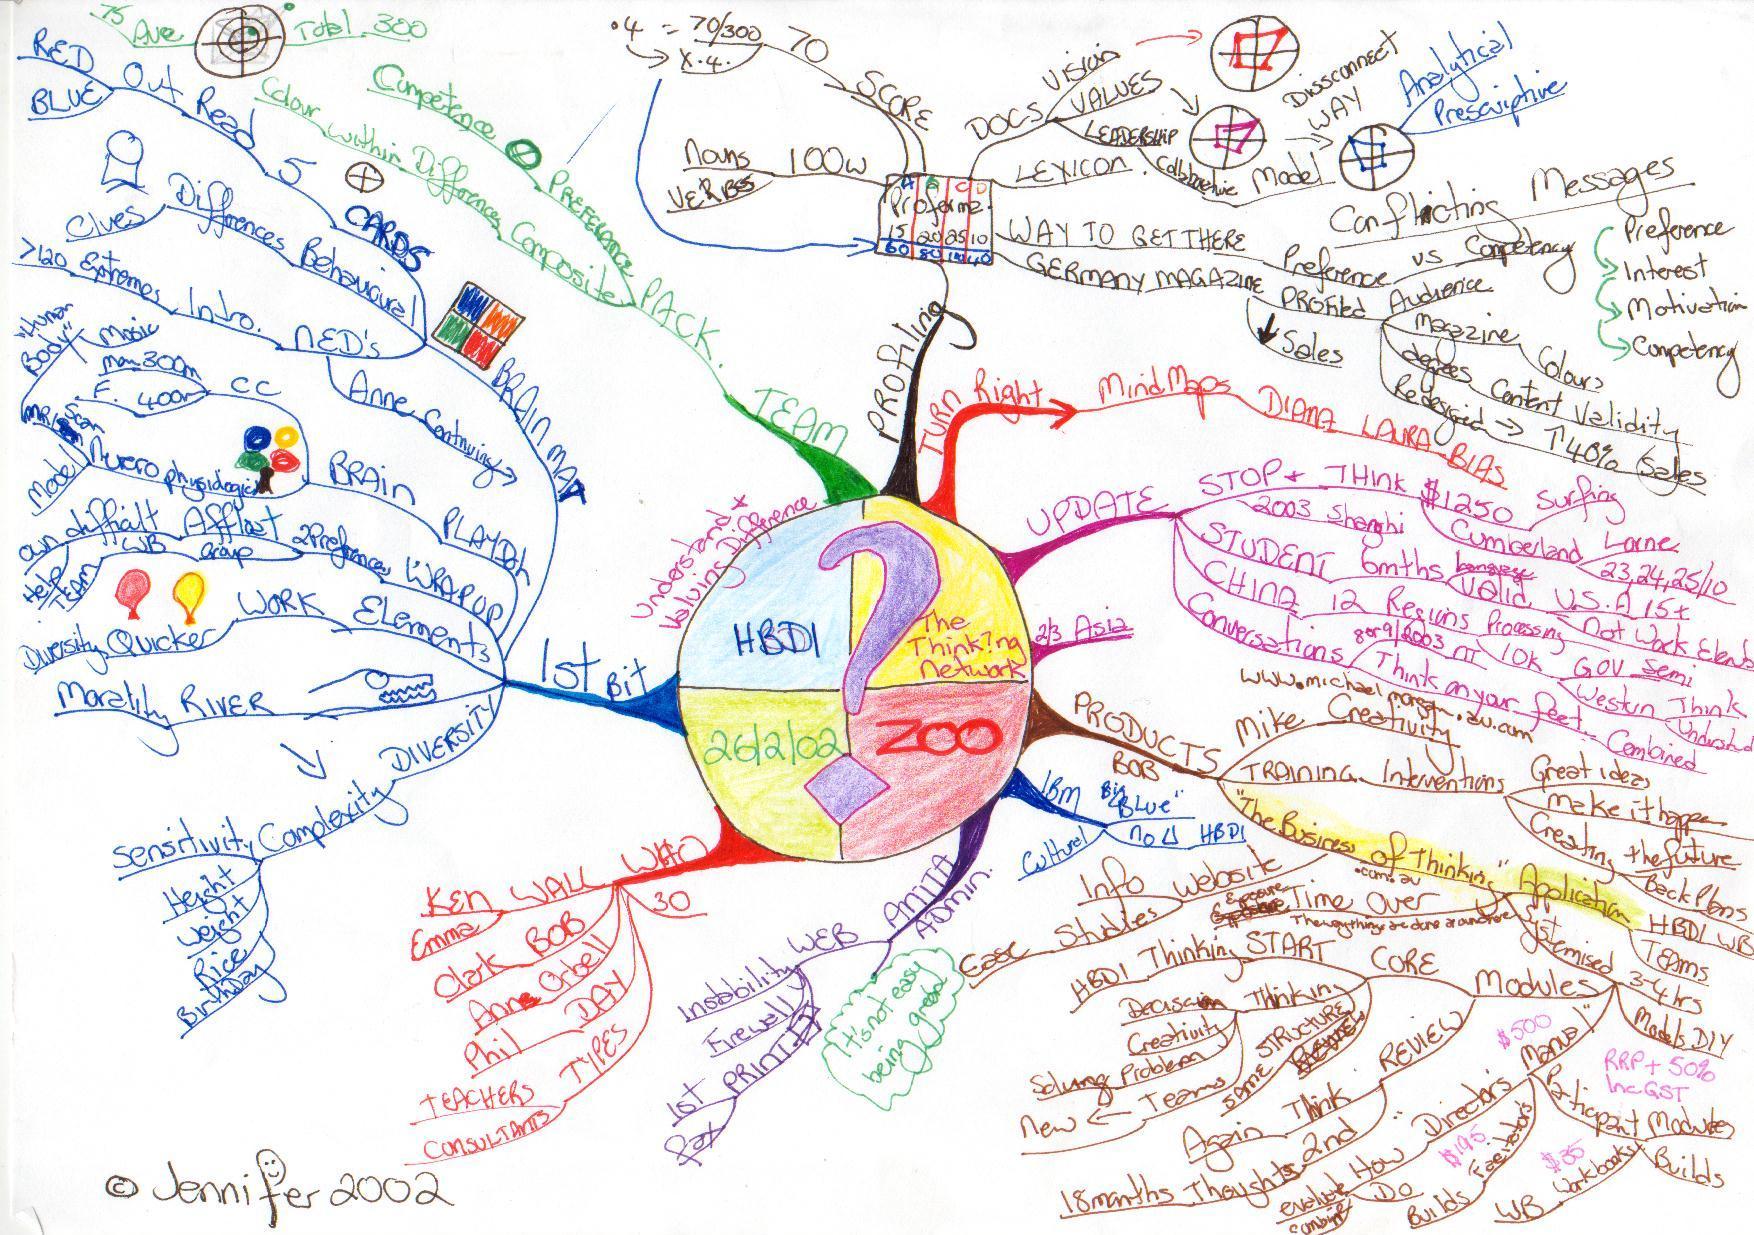 HBDI
The
Think?ng
Network
26/2/02
ZOO
?
Understand +
Valuing Difference
1st Bit
BRAIN MAP
NED'S
Intro.
Extremes
>120
Behavioural
Differences
Clues
CARDS
5
Read
Out
RED
BLUE
Anne Continuing
PLAYDoh
BRAin
CC
man 300m
F. 400m
Neuro physiologic
MRI Scan
Model
"Human
Body"
Music
WRAP UP
2 Preferences
Afflast
difficult
own
group
WB
Help
TEAM
Elements
WORK
Quicker
Diversity
RIVER
Morality
DIVERSITY
Complexity
Sensitivity
Height
Weight
Rice
Birthday
TEAM
PACK.
PREFERANCE
Competence
Composite
Differences
within
Colour
75
Ave
Total 300
PROfiling
Proforma
A B C D
15 20 25 10
60 80 100 40
SCORE
70
.4 = 70/300
X.4.
100w
Nouns
VERBS
DOCS
Vision
VALUES
LEADERSHIP
Collaborative Model
Dissconnect
WAY
Analytical
Prescriptive
LEXICON
WAY TO GET THERE
Preference vs Competency
Conflicting Messages
Preference
Interest
Motivation
Competency
GERMANY MAGAZINE
PROfiled Audience
Sales
Magazine
Colours
degrees Content Validity
Redesigned → ↑40% Sales
TURN Right
Mind Maps DIANA LAURA BIAS
UPDATE
STOP + THINK $1250 Surfing
2003 Shanghi
Cumberland Lorne
23,24,25/10
STUDENT 6mths Language
Valid U.S.A 15+
CHINA 12 Regions Processing Not Work Elements
10K GOV Semi
Conversations
8 or 9/2003 NT
Think on your feet
Western Think
Understand
Combined
2/3 Asia
PRODUCTS
BOB
Mike Creativity
www.michaelmorgan.au.com
TRAINING Interventions
Great ideas
Make it happen
Creating the future
Back Plans
"The Business of Thinking"
.com.au
Application
HBDI WB
TEAMS
Website
Info
Studies
Ease
Exposure
Time Over
The way things are done around here
Systemised
3-4 hrs
Models DIY
Modules
CORE
START
Thinkin
HBDI
Thinking
Decision
Creativity
Solving Problem
Teams
New
SAME STRUCTURE
REVIEW
Think
Again
2nd
Thoughts
18 months
"Director's Manual"
$500
How
Do
evaluate
combine
Facilitators
$195
Builds
Participant Modules
Builds
Workbooks
$35
WB
RRP + 50%
Inc GST
IBM
Big "Blue"
no Δ HBDI
Culture!
ANITA
ADMIN.
WEB
Instability
Firewall
PRINT
1st
fax
It's not easy
being green
WHO
30
KEN WALL
Emma
Clark BOB
Anne Orbell
Phil DAY
TYPES
TEACHERS
CONSULTANTS
© Jennifer 2002